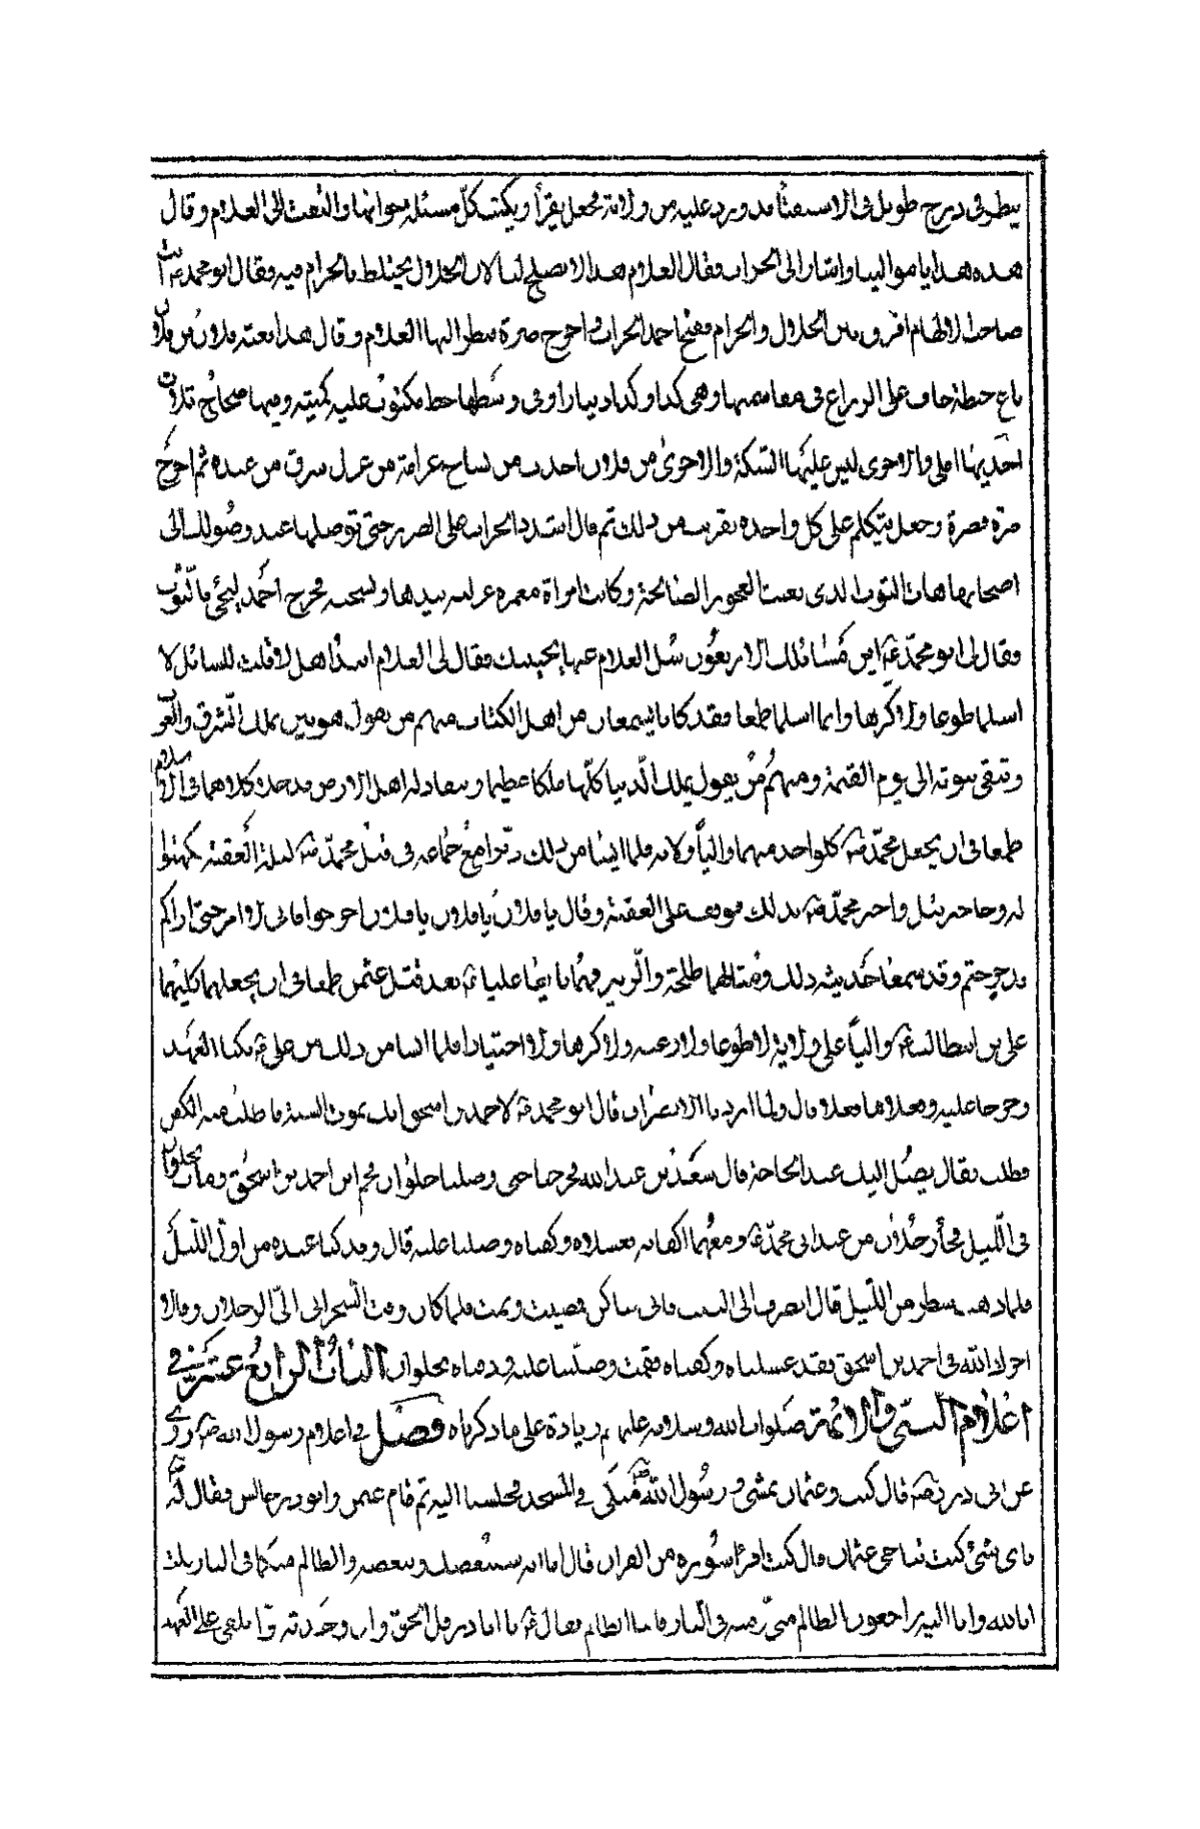 ينظر في درج طويل في الاستفتاء قد ورد عليه من ولاته فجعل يقرأ ويكتب كلّ مسئلة جوابها والتفت الى الغلام وقال
هذه هدايا موالينا واشار الى الجراب فقال الغلام هذا لا يصلح لنا لان الحلال مختلط بالحرام فيه فقال ابو محمد ع انت
صاحب الالهام افرق بين الحلال والحرام ففتح احمد الجراب واخرج صرة فنظر اليها الغلام وقال هذا بعثه فلان بن فلان
باع حنطة خاف على الزراع في مقاسمتها وهي كذا وكذا دينارا وفي وسطها خط مكتوب عليه كميته وفيها صحاح ثلاث
احديها املي والاخرى ليس عليها السّكة والاخرى من فلان اخذت من نساج غرامة من غزل سرق من عنده ثم اخرج
صرة فصرة وجعل يتكلم على كل واحدة بقريب من ذلك ثم قال اشدد الجراب على الصرر حتى توصلها عند وصولك الى
اصحابها هات الثوب الذي بعثت العجوز الصالحة وكانت امراة معمرة غزلته بيدها ونسجته فخرج احمد ليجئ بالثوب
وقال لي ابو محمّد ع اين مسائلك الاربعون سل الغلام عنها يجيبك فقال لي الغلام ابتداء هلا قلت للسائل لا
اسلما طوعا ولا كرها وانما اسلما طمعا فقد كانا يسمعان من اهل الكتاب منهم من يقول هو نبي يملك الشرق والغرب
وتبقى نبوته الى يوم القيمة ومنهم من يقول يملك الّدنيا كلّها ملكا عظيما وينقاد له اهل الارض فدخلا كلاهما في الاسلام
طمعا في ان يجعل محمّد ص كلواحد منهما والياً ولاية فلما ايسا من ذلك دبّرا مع جماعة في قتل محمّد ص ليلة العقبة فكمنوا
له وجاء جبرئيل واخبر محمّد ص بذلك فوقف على العقبة وقال يا فلان يا فلان يا فلان اخرجوا فاني لا امر حتى اراكم
قد خرجتم وقد سمع حذيفة ذلك ومثالهما طلحة والزبير فهما بايعا عليا ع بعد قتل عثمن طمعا في ان يجعلهما كليهما
على بن ابيطالب ع واليا على ولاية لا طوعا ولا رغبة ولا كرها ولا اختيارا فلما ايسا من ذلك من علي ع نكثا العهد
وخرجا عليه وفعلا ما فعلا قال ولما اردنا الانصراف قال ابو محمد ع لاحمد بن اسحق انك تموت السنة فاطلب منه الكفن
فطلب فقال يصل اليك عند الحاجة قال سعد بن عبد الله فخرجنا حتى وصلنا حلوان فحم ابن احمد بن اسحق ومات بحلوان
في اللّيل فجاء رجلان من عند ابي محمّد ع ومعهما اكفانه فغسلاه وكفناه وصليا عليه قال وقد كنا عنده من اول اللّيل
فلما ذهب شطر من اللّيل قال انصرف الى البيت فاني ساكن فمضيت ونمت فلما كان وقت السّحر اتى الىّ الرجلان وقالا
اجرك الله في احمد بن اسحق فقد غسلناه وكفناه فقمت وصلّينا عليه ودفناه بحلوان الباب الرابع عشر في
اعلام النبي والائمة صلوات الله وسلامه عليهم زيادة على ما ذكرناه فصل في اعلام رسول الله ص روي
عن ابي ذر رض قال كنت وعثمان نمشي ورسول الله ص متكئ في المسجد فجلسنا اليه ثم قام عثمن وابو ذر جالس فقال له
باي شئ كنت تناجي عثمان قال كنت اقرأ سورة من القران قال اما انه سيبغضك وتبغضه والظالم منكما في النار قلت
انا لله وانا اليه راجعون الظالم منّي ومنه في النار فاينا الظالم فقال ع يا ابا ذر قل الحق وان وجدته مرّا تلقني على العهد